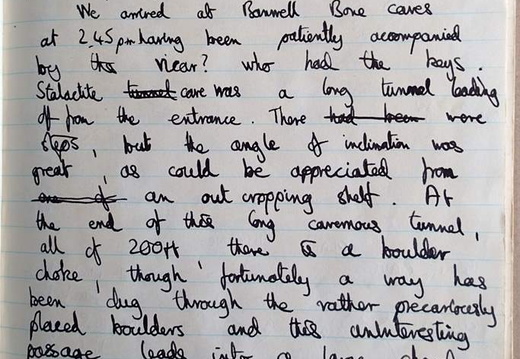 We arrived at Banwell Bone caves
at 2.45pm having been patiently accompanied
by the vicar? who had the keys.
Stalactite tunnel cave was a long tunnel leading
off from the entrance. There had been were
steps, but the angle of inclination was
great, as could be appreciated from
one of an out cropping shelf. At
the end of this long cavernous tunnel,
all of 200ft, there is a boulder
choke, though fortunately a way has
been dug through the rather precariously
placed boulders and this uninteresting
passage leads into a large